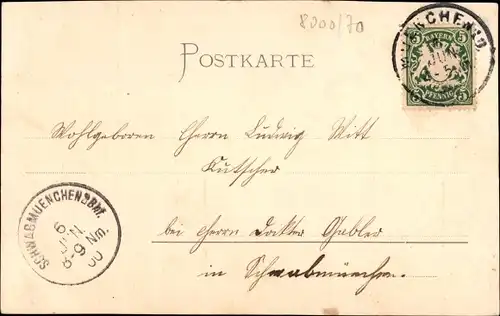 8000/70
POSTKARTE
BAYERN
5 5
PFENNIG
MUENCHEN
JUN
Wohlgeboren Herrn Ludwig Witt
Kutscher
bei Herrn Doktor Gabler
in Schwabmünchen.
SCHWABMUENCHEN.Bhf.
6
JUN.
8-9 Nm.
00